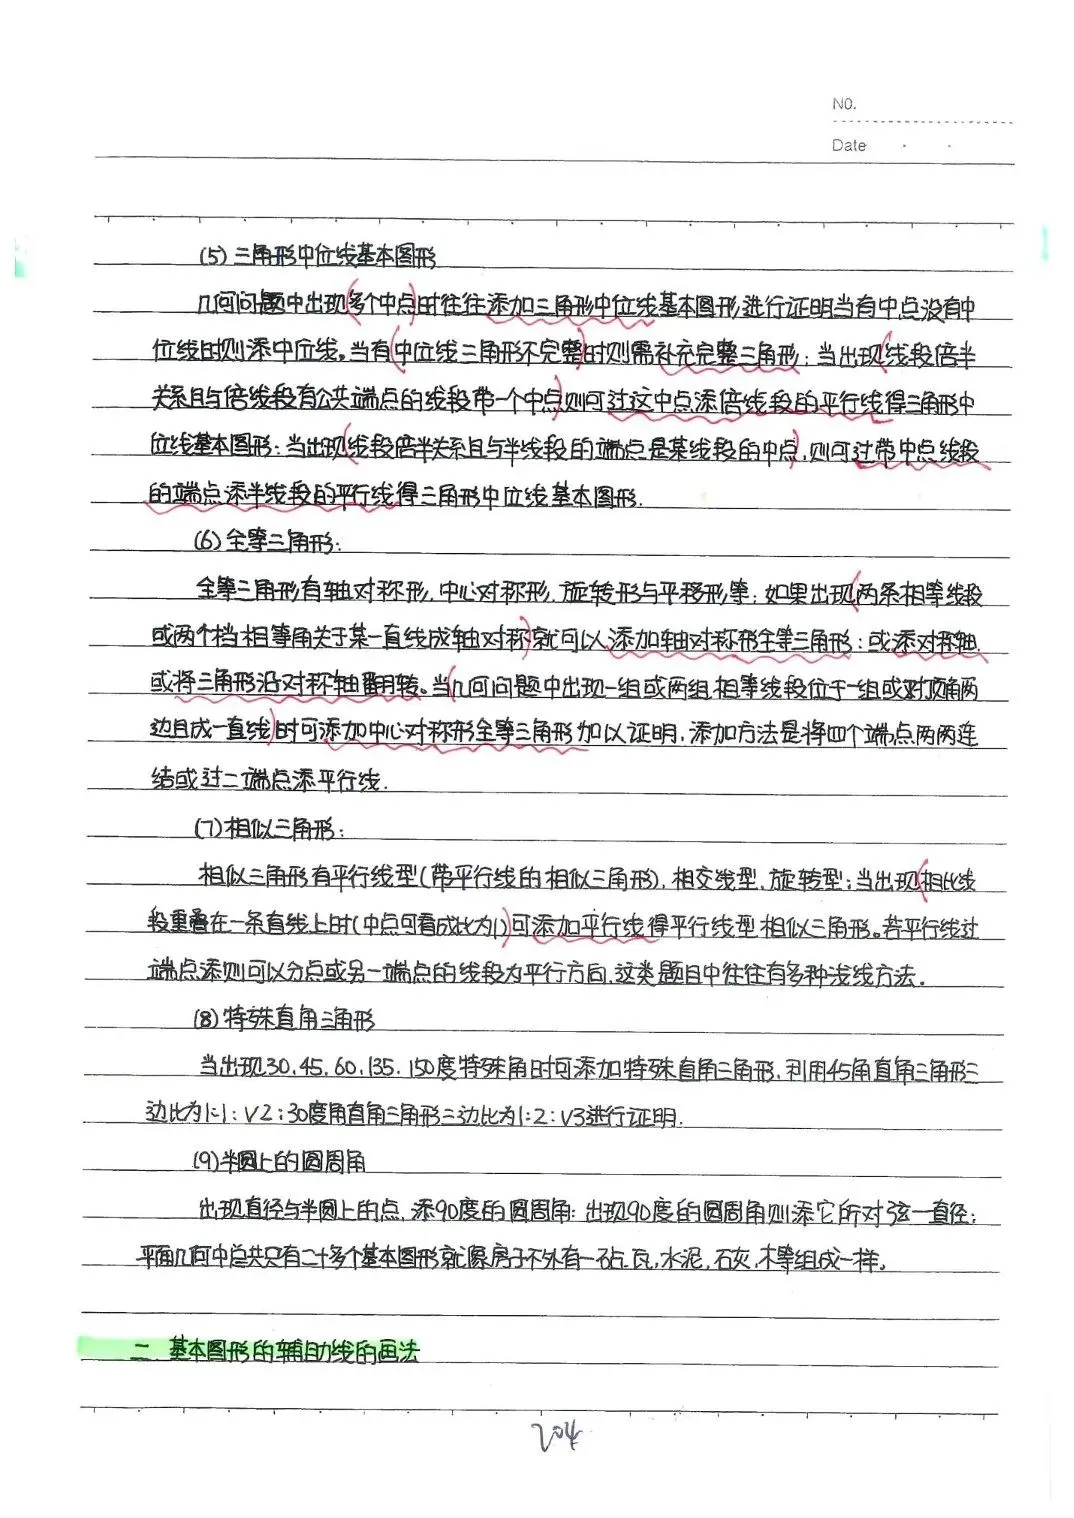 NO.
Date
(5) 三角形中位线基本图形
几何问题中出现(多个中点)时往往添加三角形中位线基本图形进行证明当有中点没有中
位线时则添中位线。当有(中位线三角形不完整)时则需补充完整三角形；当出现(线段倍半
关系且与倍线段有公共端点的线段带一个中点)则可过这中点添倍线段的平行线得三角形中
位线基本图形；当出现(线段倍半关系且与半线段的端点是某线段的中点),则可过带中点线段
的端点添半线段的平行线得三角形中位线基本图形.
(6) 全等三角形：
全等三角形有轴对称形,中心对称形,旋转形与平移形等；如果出现(两条相等线段
或两个档相等角关于某一直线成轴对称)就可以添加轴对称形全等三角形：或添对称轴,
或将三角形沿对称轴翻转。当(几何问题中出现一组或两组相等线段位于一组或对顶角两
边且成一直线)时可添加中心对称形全等三角形加以证明,添加方法是将四个端点两两连
结或过二端点添平行线.
(7)相似三角形：
相似三角形有平行线型(带平行线的相似三角形),相交线型,旋转型；当出现(相比线
段重叠在一条直线上时(中点可看成比为1)可添加平行线得平行线型相似三角形。若平行线过
端点添则可以分点或另一端点的线段为平行方向,这类题目中往往有多种浅线方法.
(8)特殊直角三角形
当出现30,45,60,135,150度特殊角时可添加特殊直角三角形,利用45角直角三角形三
边比为1:1:√2;30度角直角三角形三边比为1:2:√3进行证明.
(9)半圆上的圆周角
出现直径与半圆上的点,添90度的圆周角；出现90度的圆周角则添它所对弦一直径；
平面几何中总共只有二十多个基本图形就像房子不外有一砧,瓦,水泥,石灰,木等组成一样。
二 基本图形的辅助线的画法
204